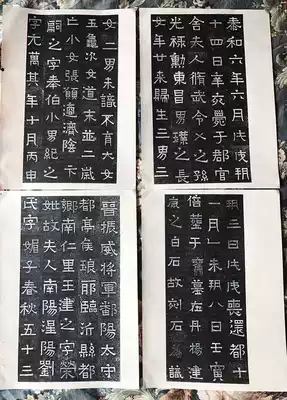 晉振威將軍鄱陽太守
都亭侯琅耶臨沂縣都
鄉南仁里王建之字榮
妣故夫人南陽涅陽劉
氏字媚子春秋五十三
泰和六年六月戊戌朔
十四日辛亥薨于郡官
舍夫人脩武令乂之孫
光祿勳東昌男璞之長
女年廿來歸生三男三
女二男未識不育大女
玉龜次女道末並二歲
亡小女張願適濟陰卞
嗣之字奉伯小男紀之
字元萬其年十月丙申
朔三日戊戌喪還都十
一月乙未朔八日壬寅
倍葬于舊墓在丹楊建
康之白石故刻石為識